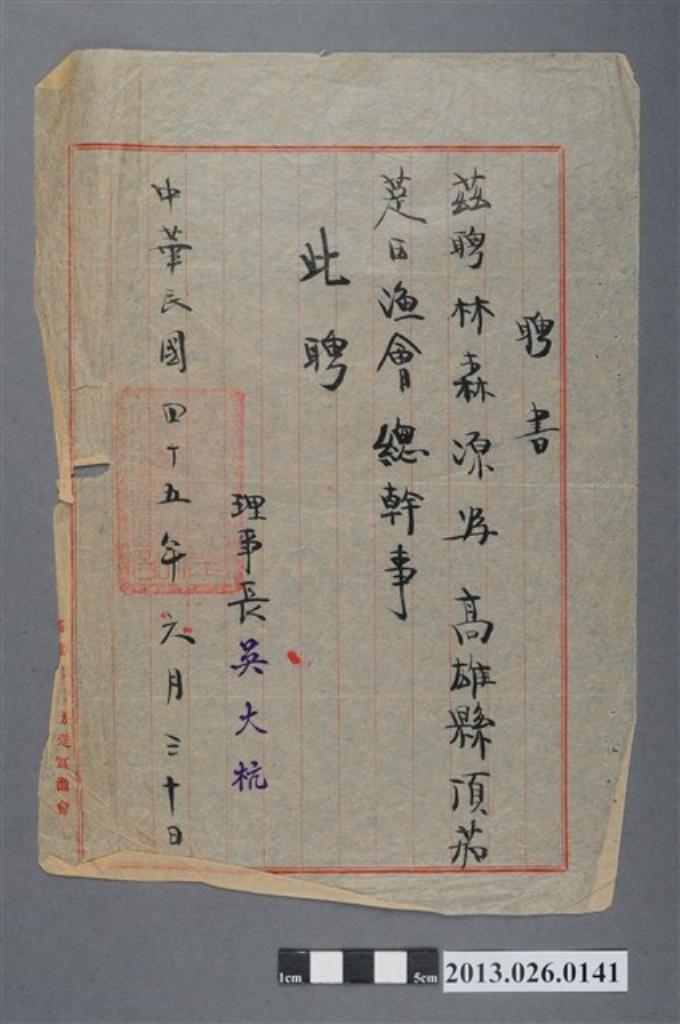 聘書
茲聘林森源為高雄縣頂茄
萣区漁會總幹事
此聘
理事長吳大杭
中華民國四十五年六月三十日
萣區漁會
1cm 5cm
2013.026.0141